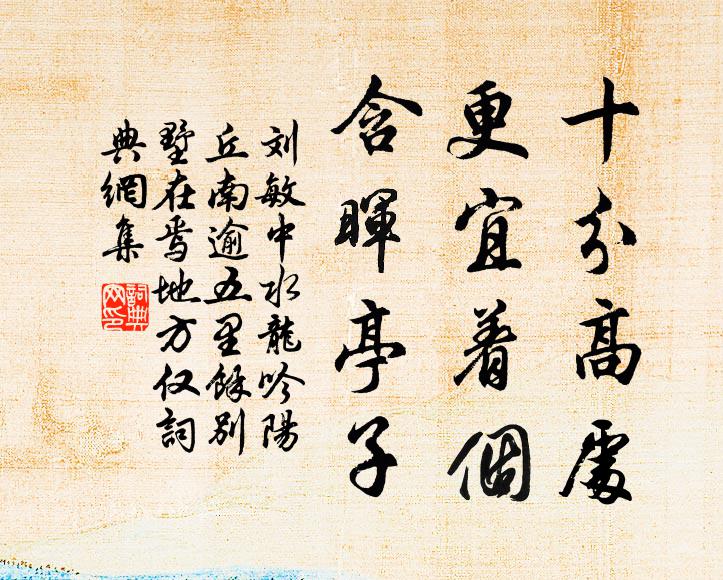 十分高處
更宜着個
含暉亭子
刘敏中水龍吟陽
丘南逾五里餘別
墅在焉地方仅詞
典網集
詞典
网印